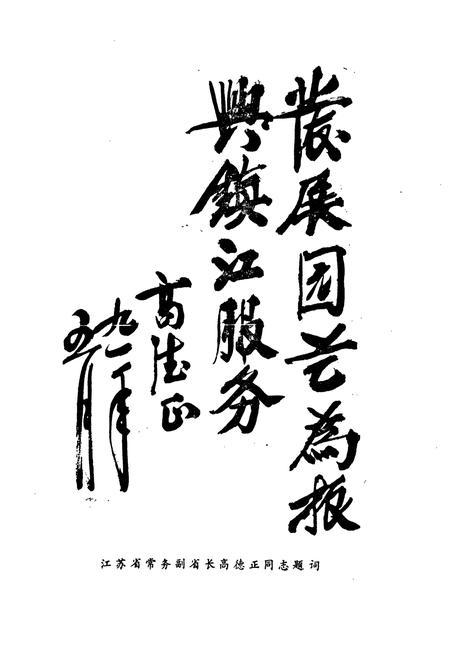 發展园艺為振
興鎮江服务
高德正
九一年
五月
江苏省常务副省长高德正同志题词